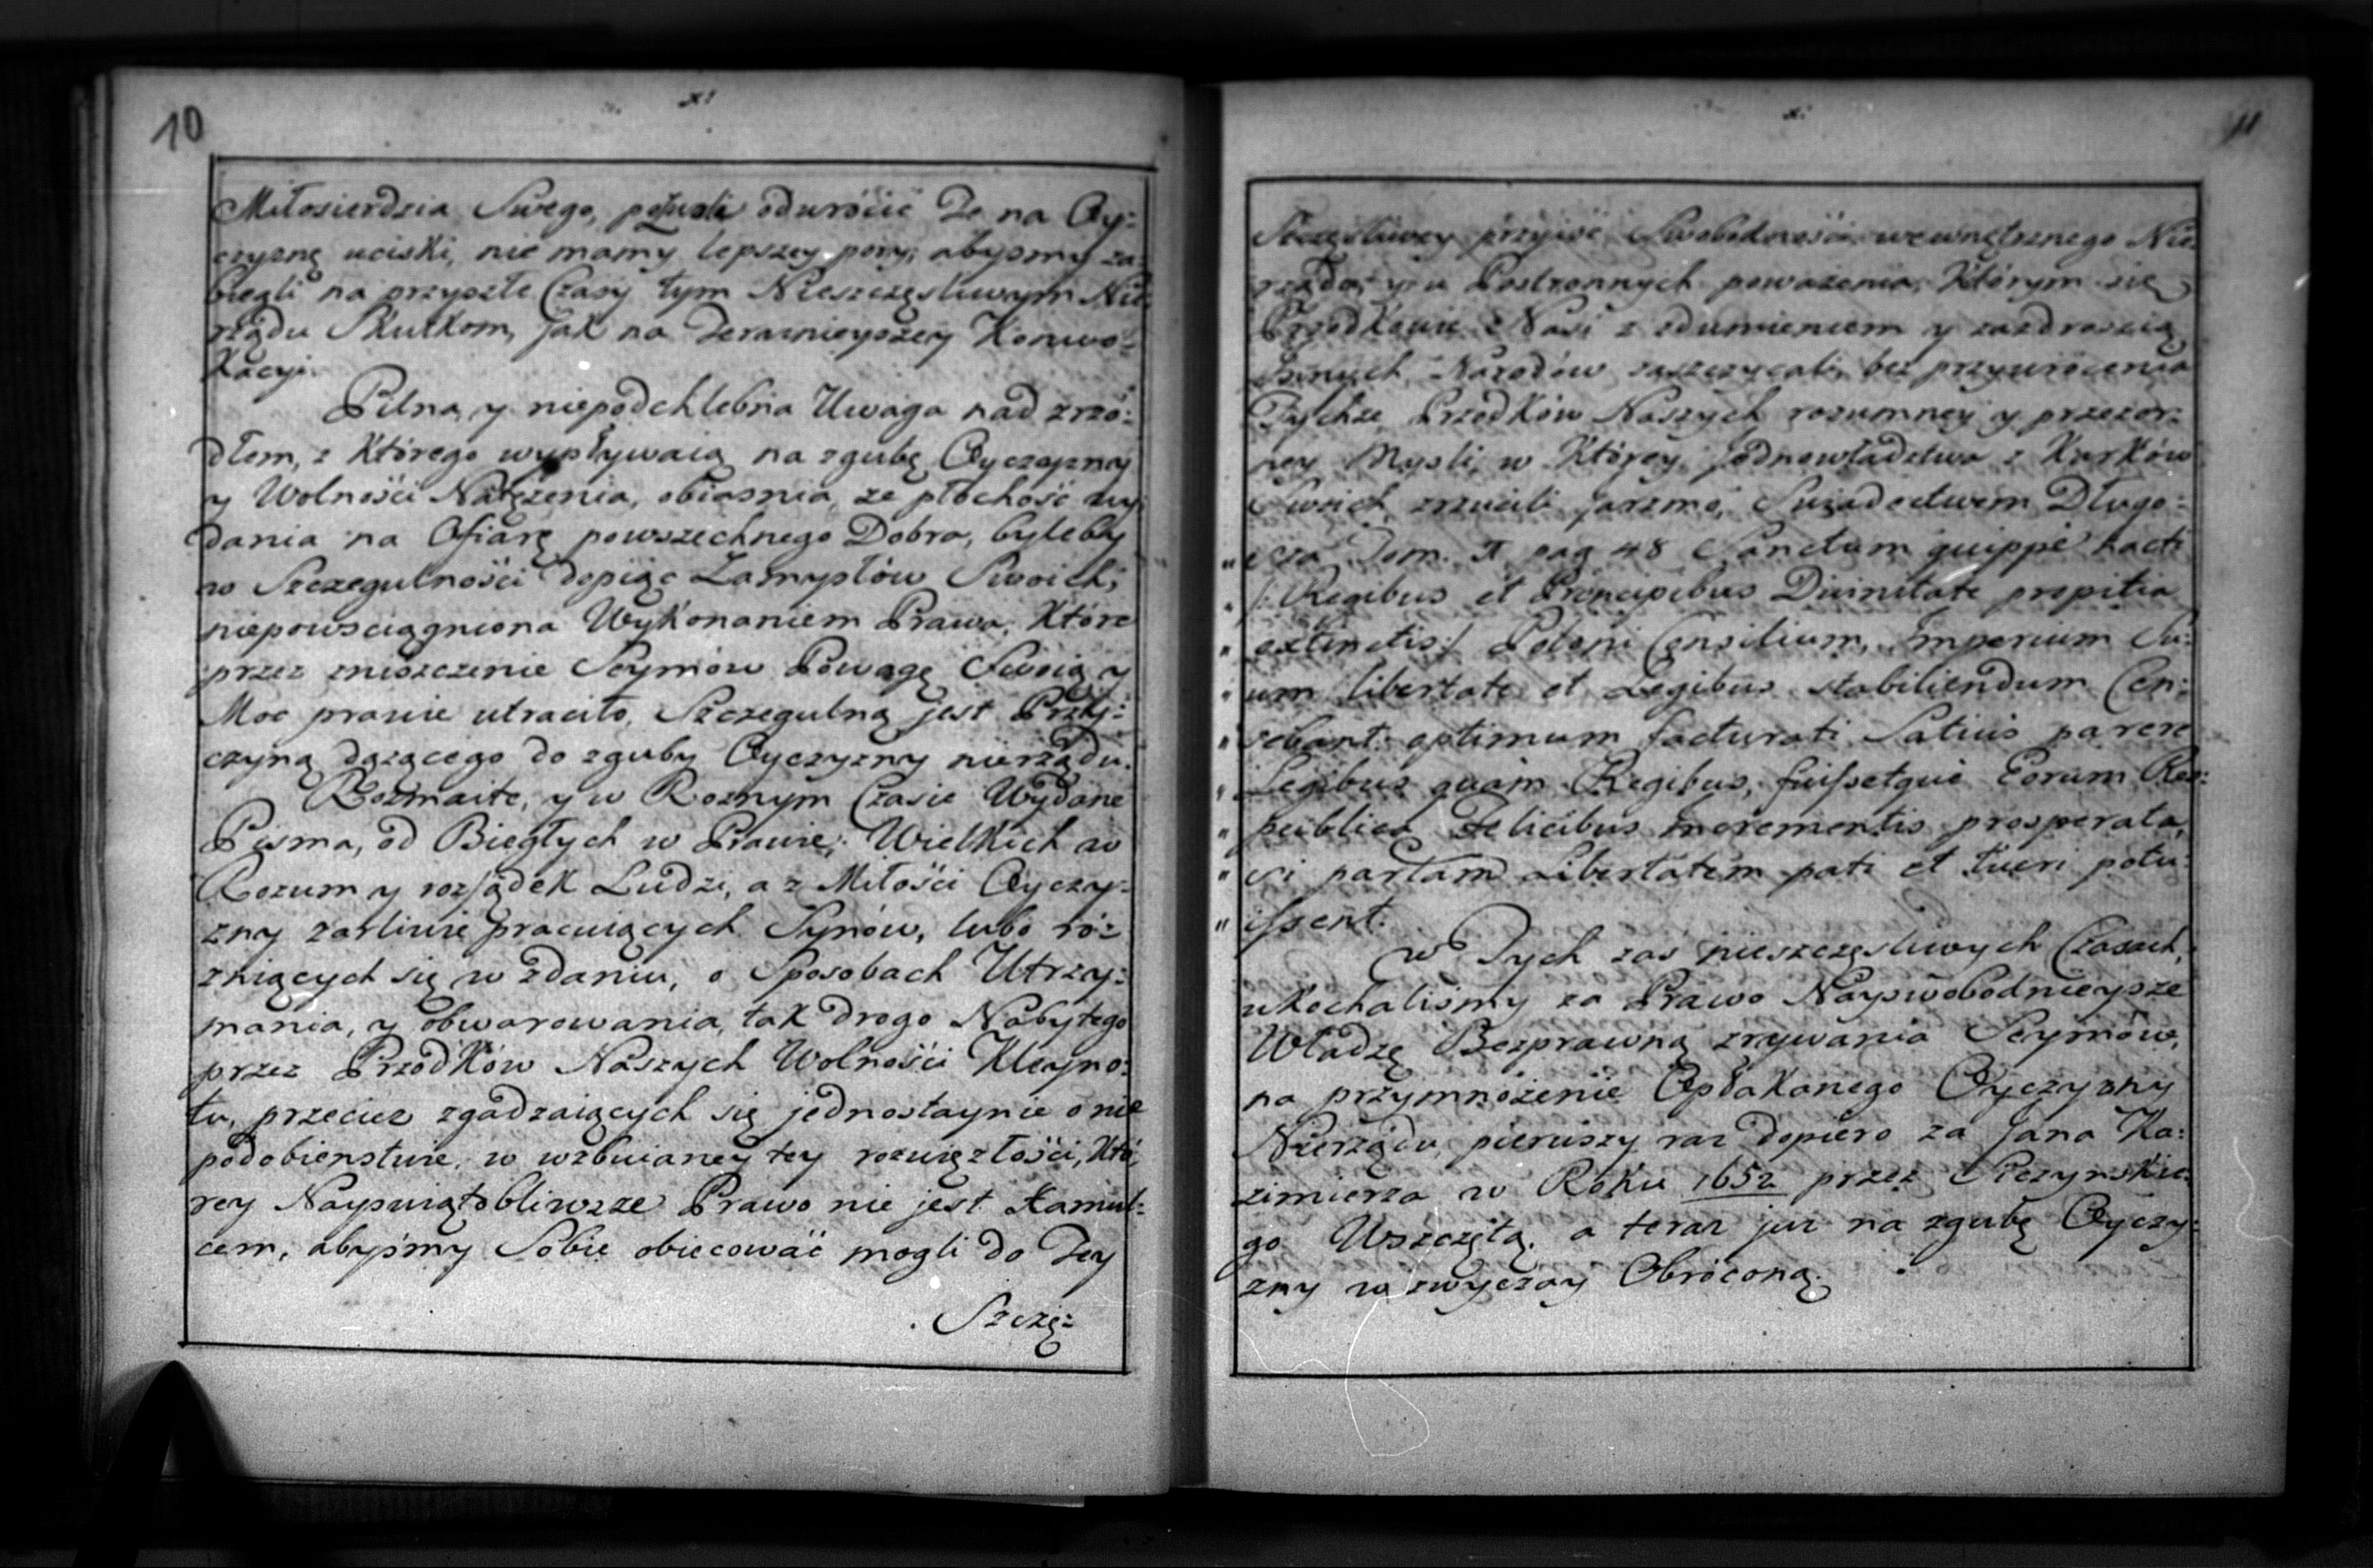 10
Miłosierdzia Swego, odwrócić Te na Oy:
czyznę uciski, nie mamy lepszey pory, abysmy za:
biegli na przyszłe Czasy tym Nieszczęsliwym Nie:
rządu Skutkom, Jak na Teraznieyszey Konwo:
kacyi.
Pilna, y niepodchlebna Uwaga nad zrzó:
dłem, z Którego wypływaią na zgubę Oyczyzny
y Wolności Natęzenia, obiasnia, ze płochość wy:
dania na Ofiarę powszechnego Dobra, byleby
w Szczegulności dopiąc Zamysłów Swoich,
niepowsciągniona Wykonaniem Prawa, Które
przez zniszczenie Seymow Powagę Swoią y
Moc prawie utraciło, Szczegulną jest Przy:
czyną dązącego do zguby Oyczyzny nierządu.
Rozmaite, y w Roznym Czasie Wydane
Pisma, od Biegłych w Prawie, Wielkich w
Rozum y rozsądek Ludzi, a z Miłości Oyczy:
zny zarliwie pracuiących Synów, lubo ró:
zniących się w zdaniu, o Sposobach Utrzy:
mania, y obwarowania, tak drogo Nabytego
przez Przodków Naszych Wolności Kleyno:
tu, przeciez zgadzaiących się jednostaynie o nie
podobienstwie, w wzbuianey tey rozwięzłości, Któ:
rey Nayswiątobliwsze Prawo nie jest Hamul:
cem, abyśmy Sobie obiecować mogli do Tey
Szczę:
11
Szczęsliwey przyiść Swobodności wewnętrznego Nie:
rządu, y u Postronnych powazenia, Którym się
Przodkowie Nasi z zdumieniem y zazdroscią
Innych Narodów zaszczycali, bez przywrócenia
Tychze Przodków Naszych rozumney y przezor:
ney Mysli, w Którey Jednowładztwa z Karków
Swoich zrzucili Jarzmo, Swiadectwem Długo:
" sza Tom. I pag 48 Sanctum quippe hacti
" /: Regibus et Principibus Divinitate propitia
" extinctis :/ Poloni Consilium, Imperium Su:
" um libertate et Legibus stabiliendum Cen:
" sebant: optimum facturati Satius parere
" Legibus quam Regibus, fuissetque Eorum Res:
" publica Felicibus incrementis prosperata,
" si partam Libertatem pati et tueri potu:
" issent.
W Tych zas nieszczęsliwych Czasach,
ukochalismy za Prawo Nayswobodnieysze
Władzę Bezprawną zrywania Seymów,
na przymnożenie Opłakanego Oyczyzny
Nierządu, pierwszy raz dopiero za Jana Ka:
zimierza w Roku 1652 przez Siczynskie:
go Wszczętą, a teraz juz na zgubę Oyczy:
zny w zwyczay Obróconą.